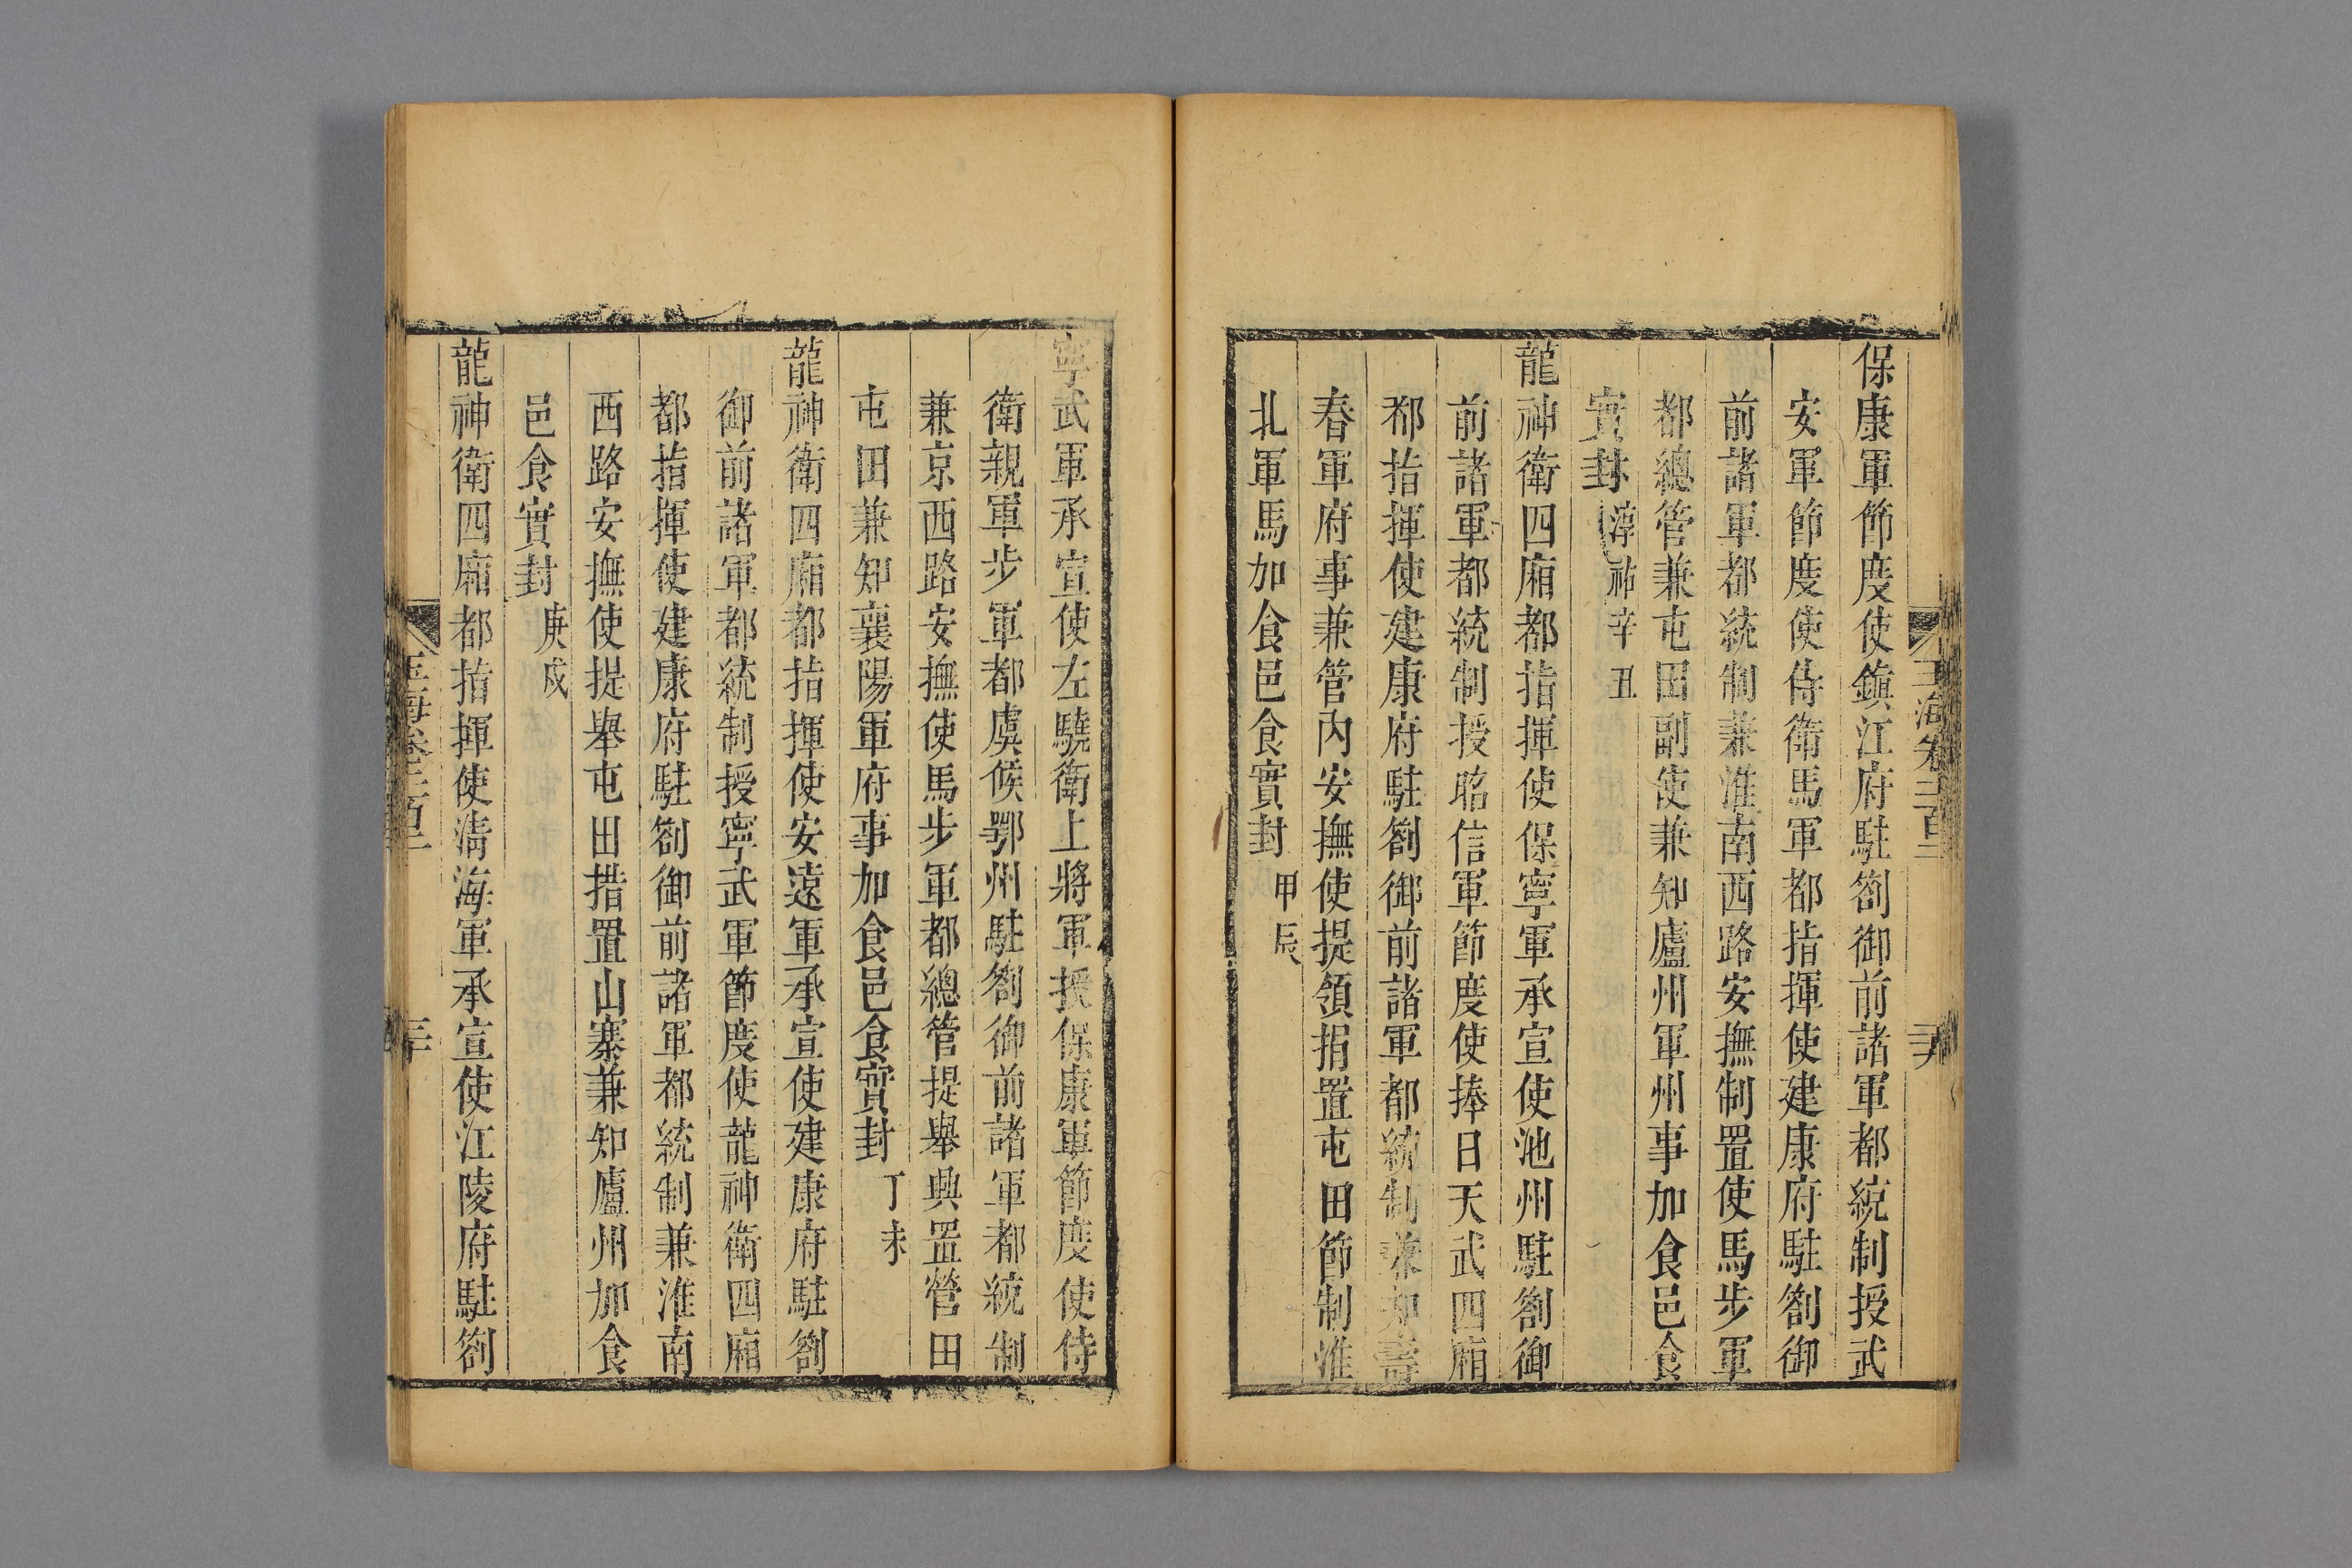 保康軍節度使鎮江府駐劄御前諸軍都統制授武
安軍節度使侍衛馬軍都指揮使建康府駐劄御
前諸軍都統制兼淮南西路安撫制置使馬步軍
都總管兼屯田副使兼知廬州軍州事加食邑食
實封淳祐辛丑
龍神衛四廂都指揮使保寧軍承宣使池州駐劄御
前諸軍都統制授昭信軍節度使捧日天武四廂
都指揮使建康府駐劄御前諸軍都統制兼知壽
春軍府事兼管內安撫使提領措置屯田節制淮
北軍馬加食邑食實封甲辰
寧武軍承宣使左驍衛上將軍授保康軍節度使侍
衛親軍步軍都虞候鄂州駐劄御前諸軍都統制
兼京西路安撫使馬步軍都總管提舉興置營田
屯田兼知襄陽軍府事加食邑食實封丁未
龍神衛四廂都指揮使安遠軍承宣使建康府駐劄
御前諸軍都統制授寧武軍節度使龍神衛四廂
都指揮使建康府駐劄御前諸軍都統制兼淮南
西路安撫使提舉屯田措置山寨兼知廬州加食
邑食實封庚戌
龍神衛四廂都指揮使清海軍承宣使江陵府駐劄